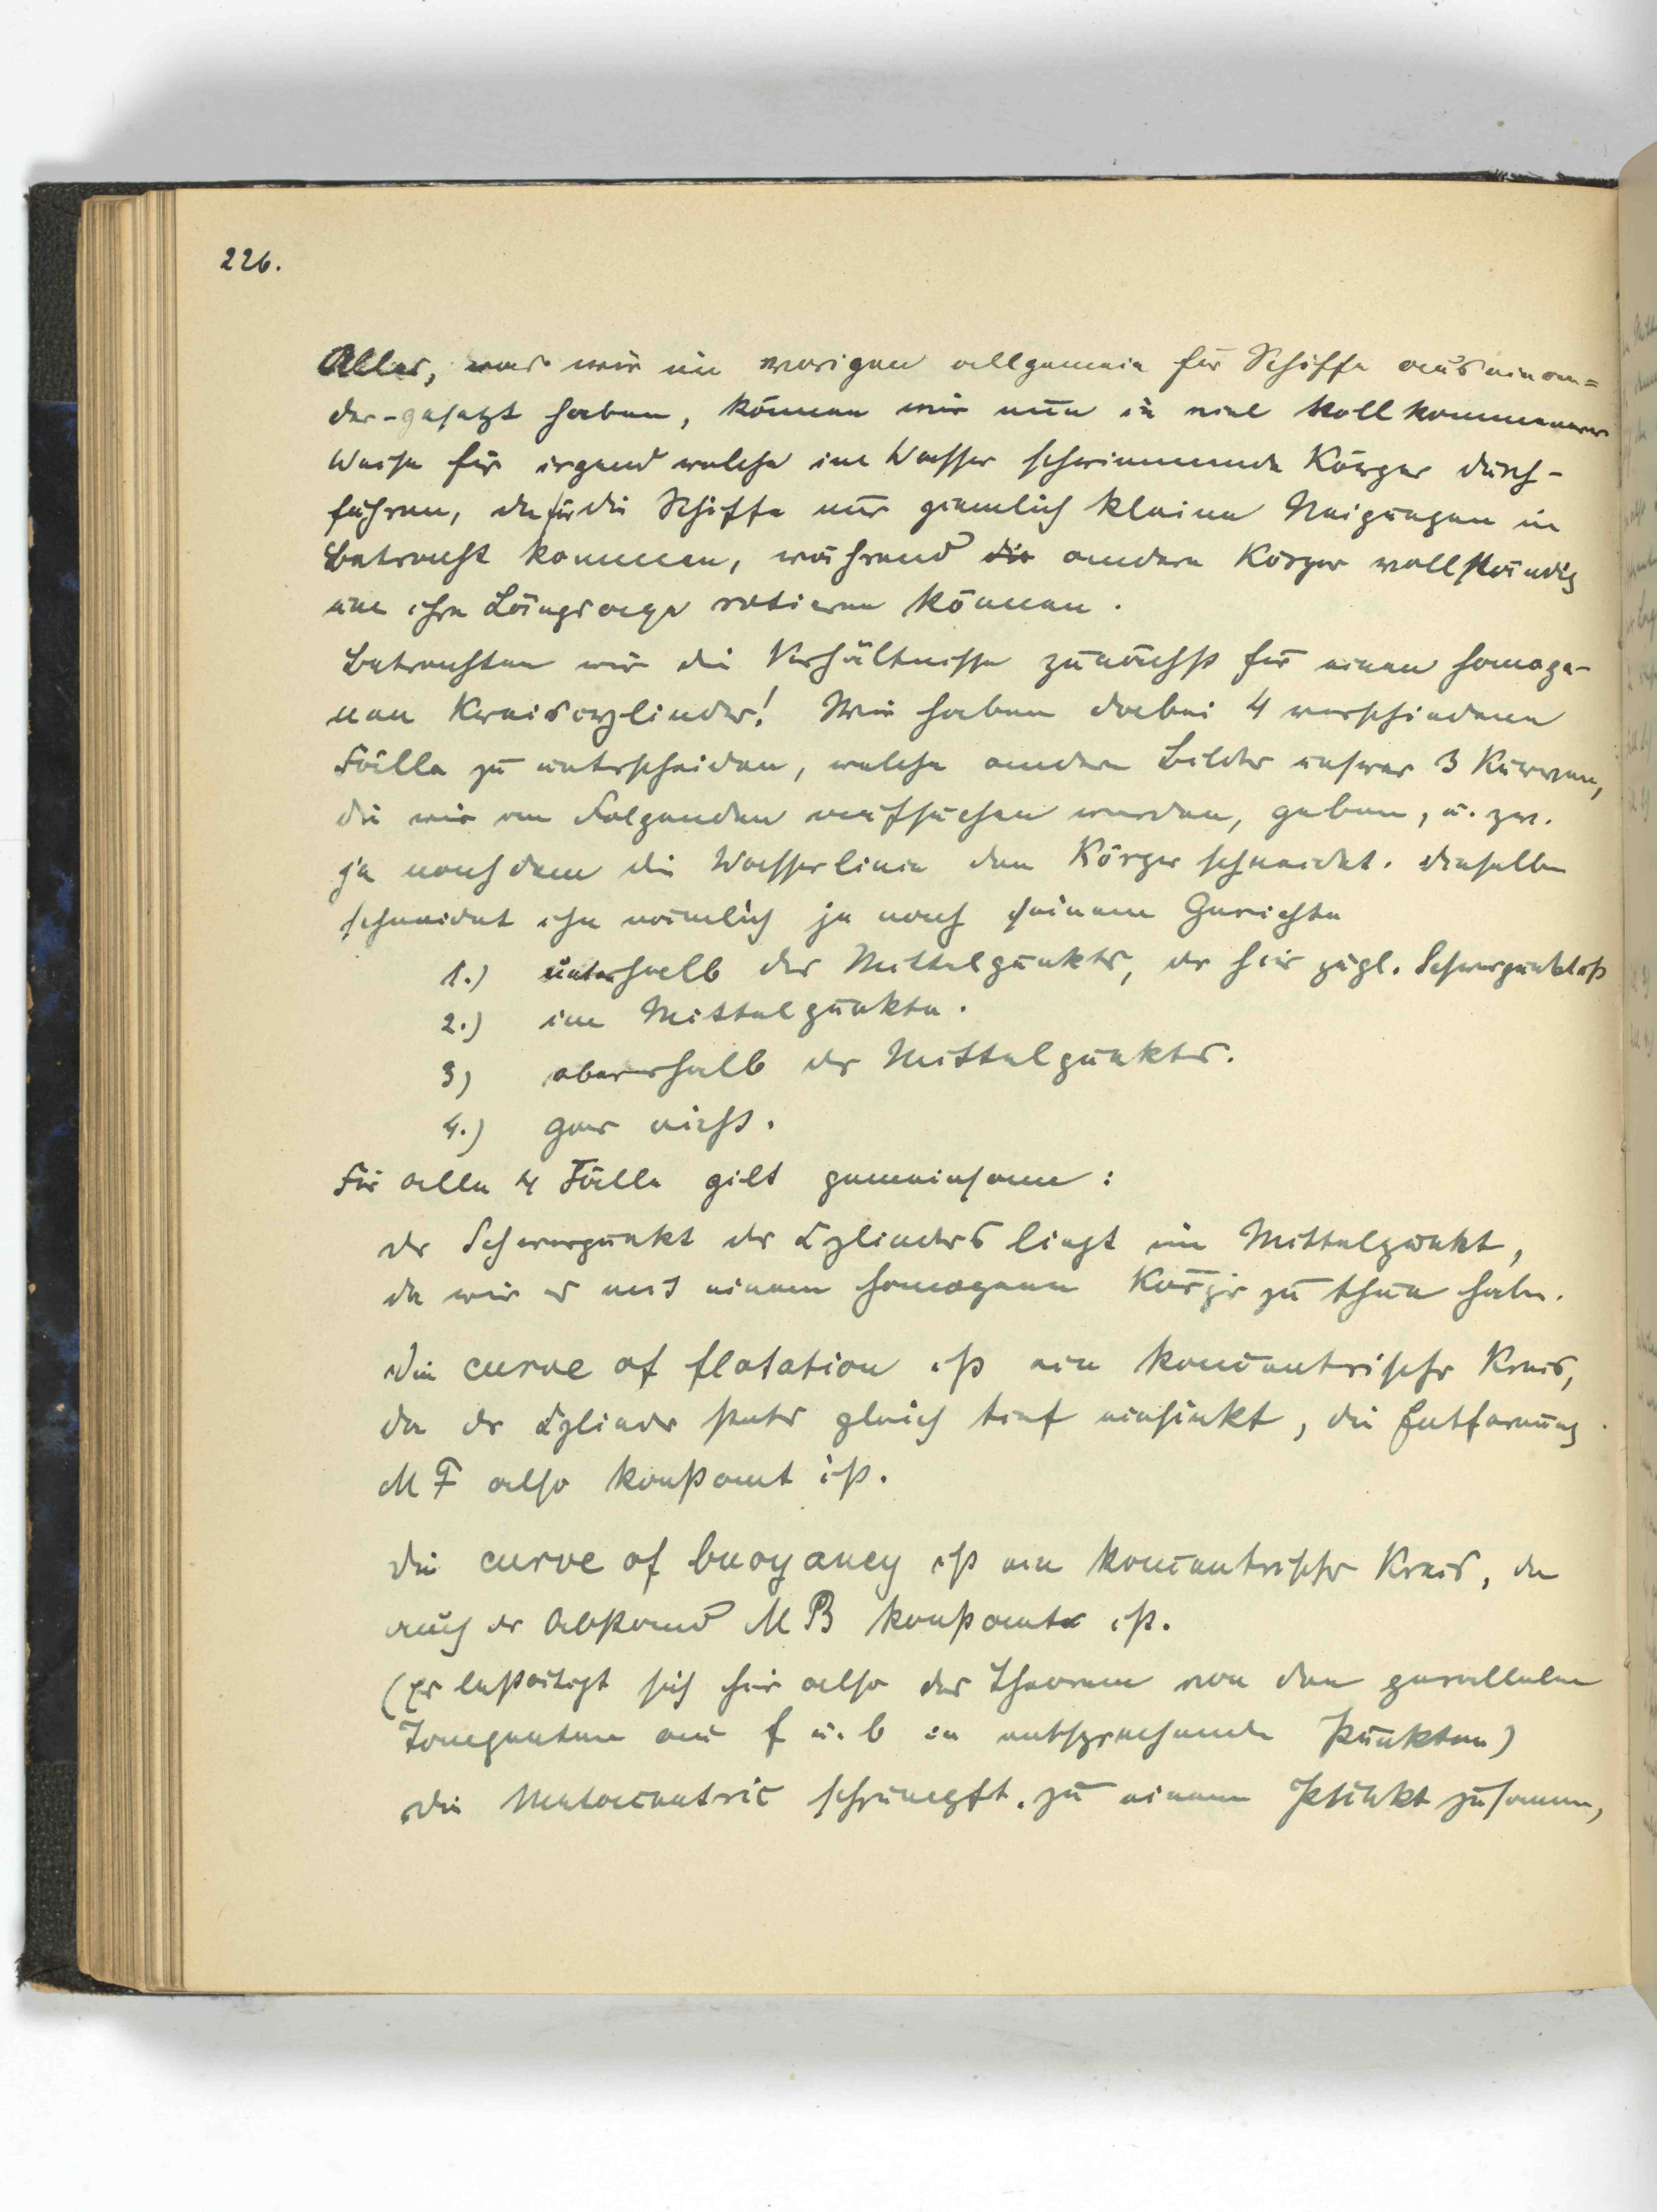 226.
Alles, was wir im vorigen allgemein für Schiffe auseinan=
der-gesetzt haben, können wir nun in viel vollkommenerer
Weise für irgend welche im Wasser schwimmende Körper durch-
führen, da für die Schiffe nur ziemlich kleine Neigungen in
Betracht kommen, während die andern Körper vollständig
um ihre Längsaxe rotieren können.
Betrachten wir die Verhältnisse zunächst für einen homoge-
nen Kreiscylinder! Wir haben dabei 4 verschiedene
Fälle zu unterscheiden, welche andere Bilder unserer 3 Kurven,
die wir im Folgenden aufsuchen werden, geben, u. zw.
je nachdem die Wasserlinie den Körper schneidet. Dieselbe
schneidet ihn nämlich je nach seinem Gewichte
1.) unterhalb des Mittelpunkts, der hier zugl. Schwerpunkt ist
2.) im Mittelpunkte.
3) oberhalb des Mittelpunktes.
4.) gar nicht.
Für alle 4 Fälle gilt gemeinsam:
der Schwerpunkt des Cylinders liegt im Mittelpunkt,
da wir es mit einem homogenen Körper zu thun haben.
Die curve of flotation ist ein koncentrischer Kreis,
da der Cylinder stets gleich tief einsinkt, die Entfernung
M F also konstant ist.
Die curve of buoyancy ist ein koncentrischer Kreis, da
auch der Abstand M B konstant ist.
(Es bestätigt sich hier also das Theorem von den parallelen
Tangenten an f u. b in entsprechenden Punkten)
Die Metacentric schrumpft zu einem Punkt zusammen,